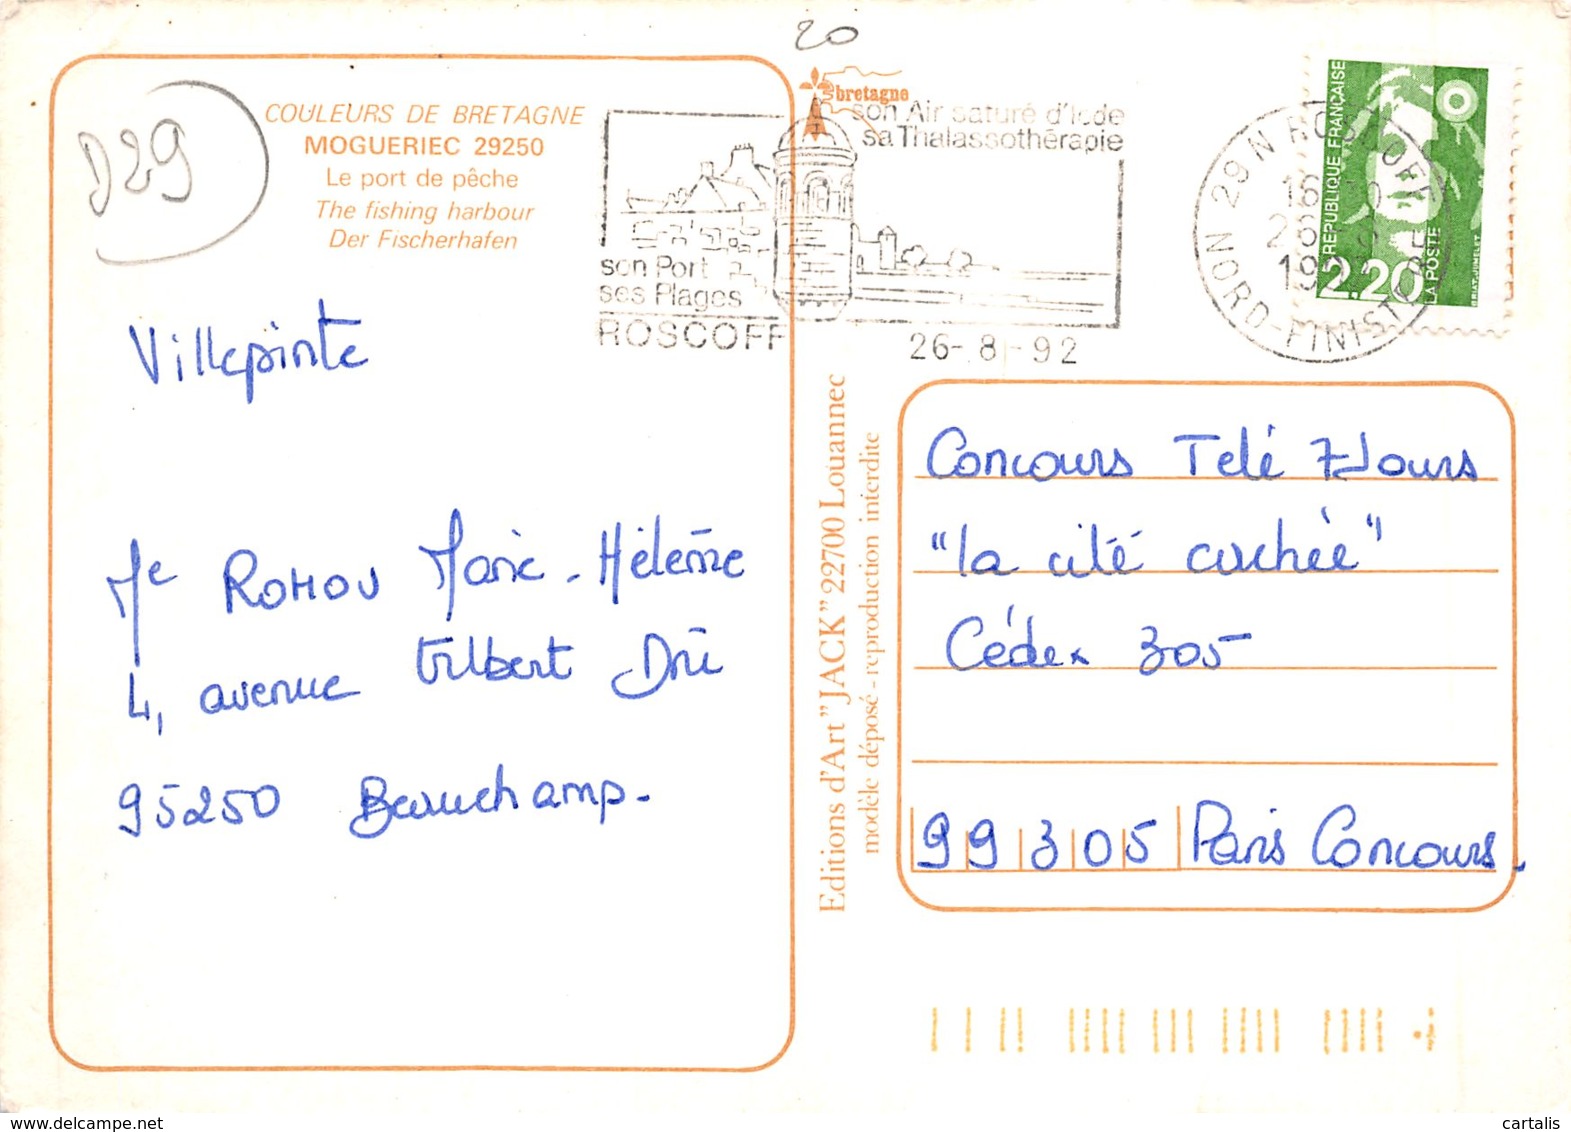 20
D29
COULEURS DE BRETAGNE
MOGUERIEC 29250
Le port de pêche
The fishing harbour
Der Fischerhafen
bretagne
son Air saturé d'Iode
sa Thalassothérapie
son Port
ses Plages
ROSCOFF
26-8-92
29 N ROSCOFF
NORD-FINISTERE
REPUBLIQUE FRANÇAISE
2,20
LA POSTE
Villepinte
Me ROMOU Marie-Hélène
4, avenue Gilbert Dru
95250 Beauchamp.
Editions d'Art "JACK" 22700 Louannec
modèle déposé - reproduction interdite
Concours Télé 7 Jours
"la cité cachée"
Cédex 305
99305 Paris Concours.
cartalis